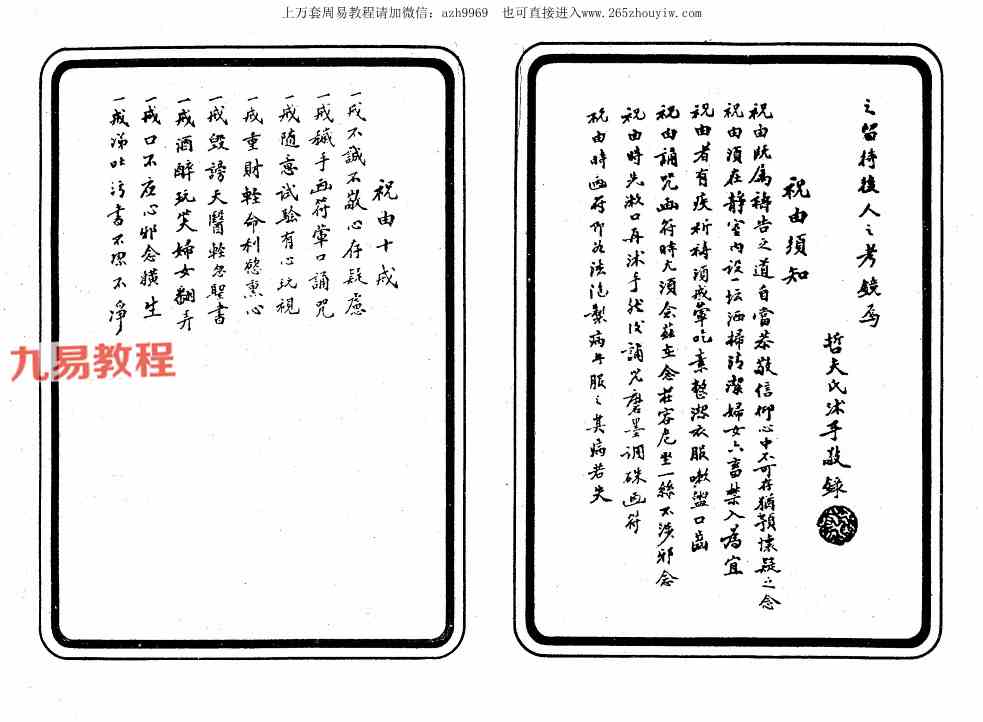 上万套周易教程请加微信：azh9969　也可直接进入www.265zhouyiw.com
之留待後人之考鏡焉
哲夫氏沐手敬錄
祝由須知
祝由既屬禱告之道自當恭敬信仰心中不可存猶預懷疑之念
祝由須在靜室內設一坛洒掃清潔婦女六畜禁入為宜
祝由者有疾祈禱須戒葷吃素整潔衣服嗽盥口齒
祝由誦咒画符時尤須念茲在念莊容危坐一絲不涉邪念
祝由時先漱口再沐手然後誦咒磨墨調硃画符
祝由時画符即為法泡製病者服之其病若失
祝由十戒
一戒不誠不敬心存疑慮
一戒穢手画符葷口誦咒
一戒随意試驗有心玩視
一戒重財輕命利慾熏心
一戒毀謗天醫輕忽聖書
一戒酒醉玩笑婦女翻弄
一戒口不应心邪念横生
一戒涕吐污書不潔不淨
九易教程